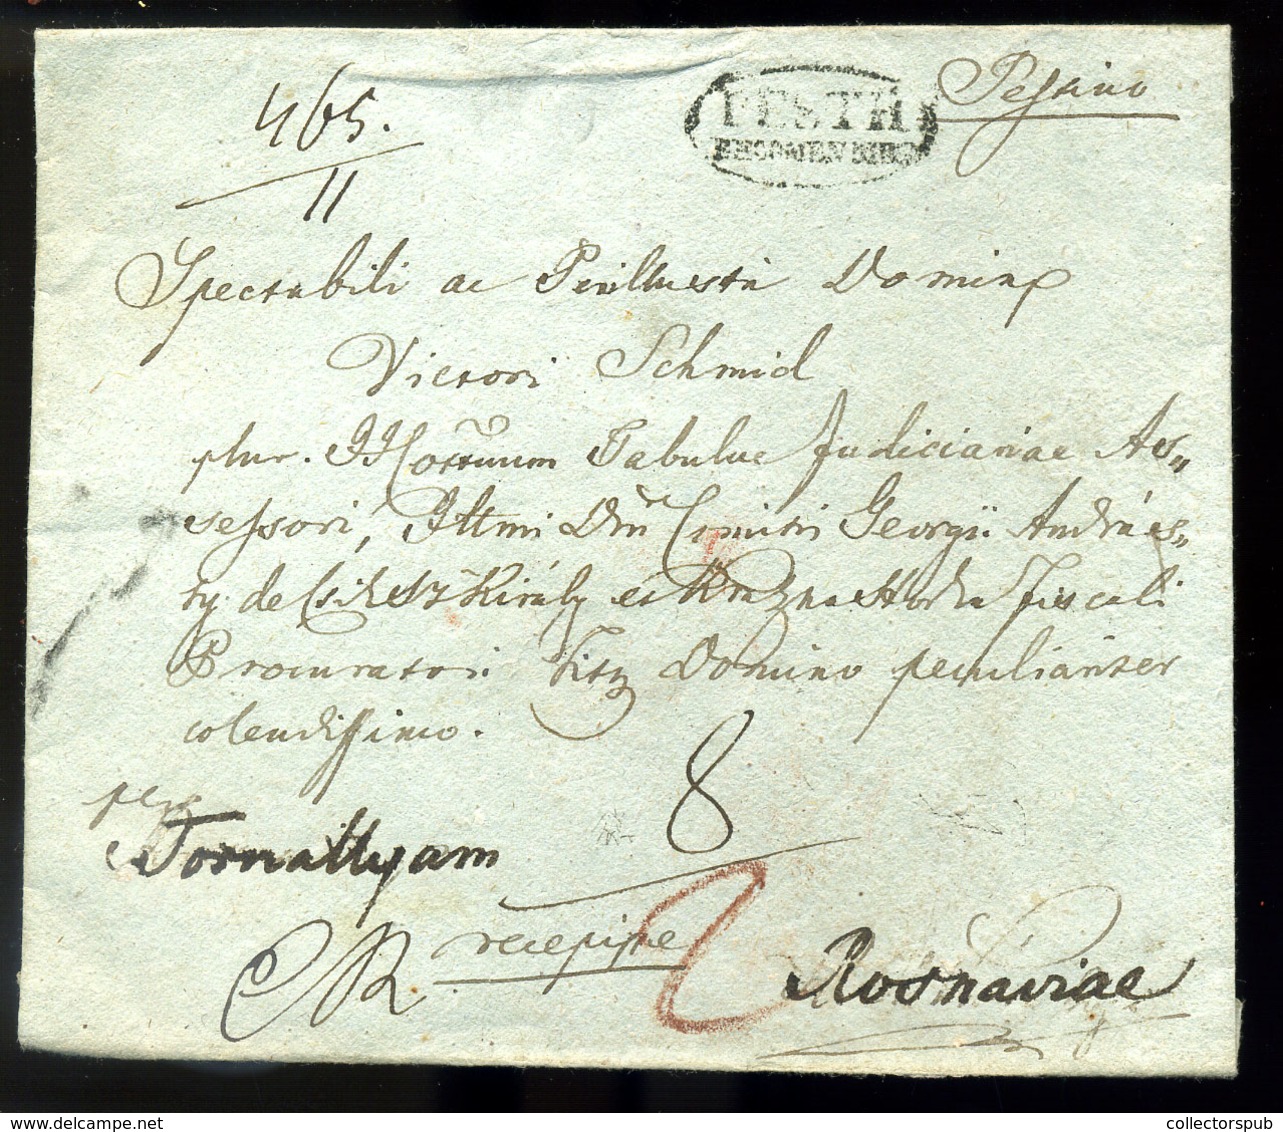 465.
11
PESTH
RECOMENDIRT
Pestino
Spectabili ac Perillustri Domino
Victori Schmid
plur. ICottuum Tabulae Judiciariae As„
sessori, Illmi Dni Comitis Georgii András„
sy de Csik Sz Király et Krazna Horka Fiscali
Procuratori Titz Domino peculiariter
colendissimo.
8
per
Tornallyam
R recepisse
2
Rosnaviae
collectorspub